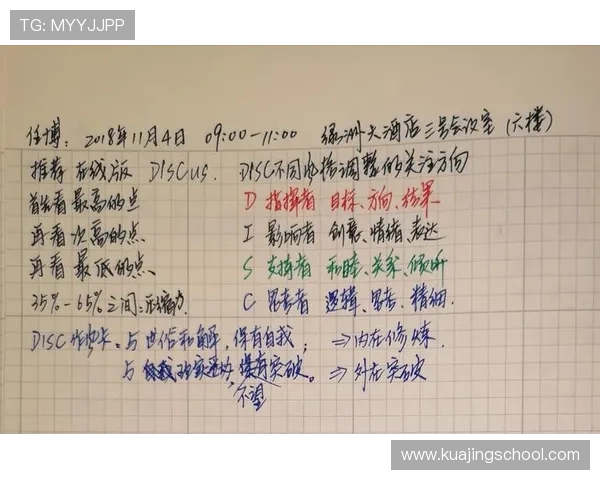 TG: MYYJJPP
任博: 2018年11月4日 09:00-11:00 绿洲大酒店三号会议室(六楼)
推荐在线版 DISCUS. DISC不同风格调整的关注方向
首先看最高的点 D 指挥者 目标、方向、结果
再看次高的点、 I 影响者 创意、情绪、表达
再看最低的点、 S 支持者 和睦、关系、倾听
35%-65%之间:压缩力 C 思考者 逻辑、思考、精细.
DISC 与世俗和解,保有自我; ⇒内在修炼.
与 突破。⇒外在突破
不望
www.kuajingschool.com